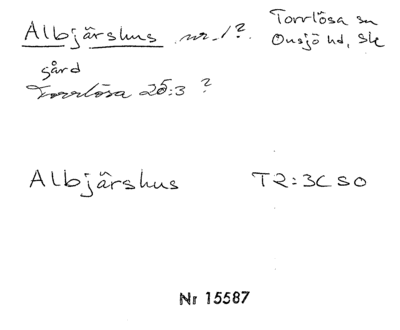 Albjärshus nr 1? Torrlösa sn
Onsjö hd, Sk
gård
Torrlösa 25:3 ?
Albjärshus TR:3C SO
Nr 15587